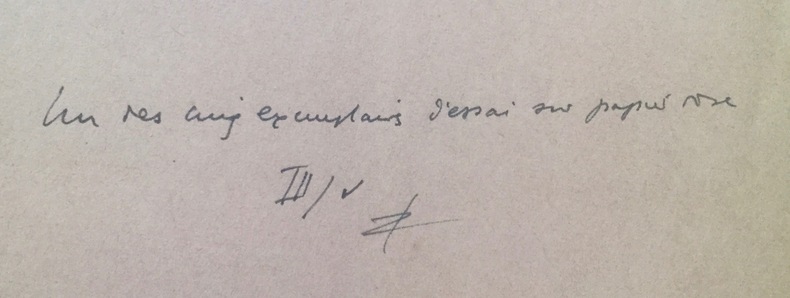 Un des cinq exemplaires d'essai sur papier rose
III/V